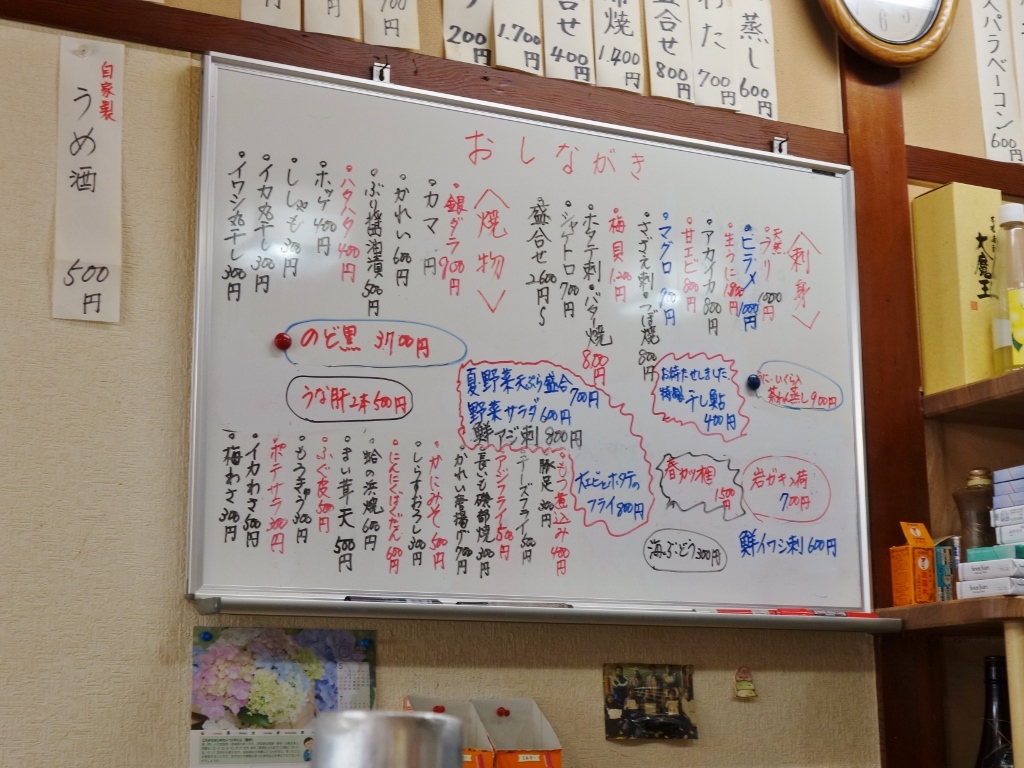 200円
1.700円
400円
1.400円
盛合せ
800円
わた
700円
蒸し
600円
スパラベーコン
600円
自家製
うめ酒
500円
おしながき
〈刺身〉
・天然ブリ 1000円
・ヒラメ 1000円
・生うに 1800円
・アカイカ 800円
・甘エビ 800円
・マグロ
・さざえ刺・つぼ焼 800円
・梅貝 1200円
・ホタテ刺・バター焼 800円
・シャトロ 700円
・盛合せ 2600円〜
〈焼物〉
・銀ダラ 900円
・カマ 円
・かれい 600円
・ぶり醤油漬 500円
・ハタハタ 400円
・ホッケ 400円
・ししゃも 300円
・イカ丸干し 300円
・イワシ丸干し 300円
のど黒 3700円
うな肝 2本 500円
夏・野菜天ぷら盛合 700円
野菜サラダ 600円
鮮アジ刺 800円
大エビとホタテの
フライ 800円
お待たせしました
特製 干し鮎
400円
いくら入
茶わん蒸し 900円
1500円
岩ガキ入荷
700円
海ぶどう 300円
鮮イワシ刺 600円
・もつ煮込み 400円
・豚足 300円
・チーズフライ 500円
・アジフライ 500円
・長いも磯部焼 300円
・かれい唐揚げ 700円
・かにみそ 500円
・しらすおろし 300円
・にんにくほくだん 600円
・蛤の浜焼 600円
・まい茸天 500円
・ふぐ皮 500円
・もろきゅう 300円
・ポテサラ 300円
・イカわさ 500円
・梅わさ 300円
大魔王